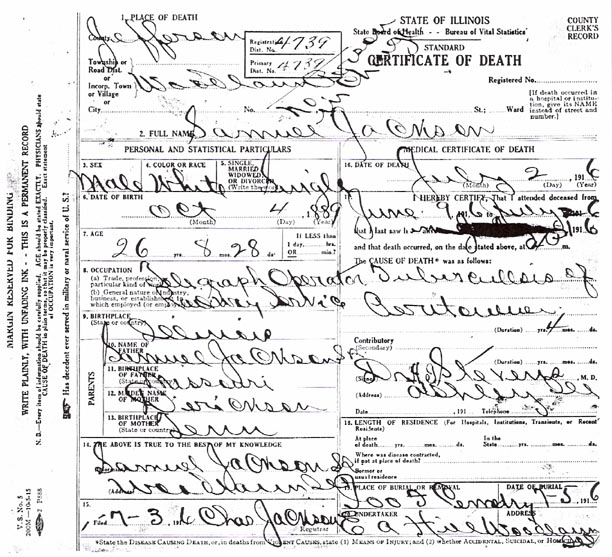 1. PLACE OF DEATH
County Jefferson
Registration Dist. No. 4739
Primary Dist. No. 4739
STATE OF ILLINOIS
State Board of Health -- Bureau of Vital Statistics
STANDARD
CERTIFICATE OF DEATH
COUNTY CLERK'S RECORD
Township or Road Dist. or Incorp. Town or Village or City Woodlawn
Registered No.
No. St.; Ward
[If death occurred in a hospital or institution, give its NAME instead of street and number.]
2. FULL NAME Samuel Jackson
PERSONAL AND STATISTICAL PARTICULARS
3. SEX Male
4. COLOR OR RACE White
5. SINGLE, MARRIED WIDOWED OR DIVORCED (Write the word) Single
6. DATE OF BIRTH
Oct 4 1889
(Month) (Day) (Year)
7. AGE
26 yrs. 8 mos. 28 ds.
If LESS than 1 day, hrs. OR min.?
8. OCCUPATION
(a) Trade, profession, particular kind of Telegraph Operator
(b) General nature of Industry, business, or establishment in which employed (or employer) Railway Service
9. BIRTHPLACE
(State or country) Illinois
PARENTS
10. NAME OF FATHER Samuel Jackson Sr.
11. BIRTHPLACE OF FATHER
(State or country) Missouri
12. MAIDEN NAME OF MOTHER
13. BIRTHPLACE OF MOTHER
(State or country) Tenn
14. THE ABOVE IS TRUE TO THE BEST OF MY KNOWLEDGE
Samuel Jackson Sr
(Address) Woodlawn
15.
Filed 7-3, 1916 Chas Jackson
Registrar
MEDICAL CERTIFICATE OF DEATH
16. DATE OF DEATH
July 2 1916
(Month) (Day) (Year)
17. I HEREBY CERTIFY, That I attended deceased from
June 1916 to July 2 1916
that I last saw h 1916
and that death occurred, on the date stated above, at
The CAUSE OF DEATH* was as follows:
Tuberculosis of
(Duration) yrs. 4 mos. ds.
Contributory
(Secondary)
(Duration) yrs. mos. ds.
(Signed) Stevens, M. D.
(Address) Ashley Ill
Date , 191 Telephone
18. LENGTH OF RESIDENCE (For Hospitals, Institutions, Transients, or Recent Residents)
At place of death yrs. mos. ds. In the State yrs. mos. ds.
Where was disease contracted, if not at place of death?
Former or usual residence
19. PLACE OF BURIAL OR REMOVAL
DATE OF BURIAL
I O O F Cemetry 7-5 1916
UNDERTAKER ADDRESS
E A Hill Woodlawn
*State the DISEASE CAUSING DEATH, or, in deaths from VIOLENT CAUSES, state (1) MEANS OF INJURY; and (2) whether ACCIDENTAL, SUICIDAL, or HOMICIDAL
MARGIN RESERVED FOR BINDING
WRITE PLAINLY, WITH UNFADING INK -- THIS IS A PERMANENT RECORD
N. B.--Every item of information should be carefully supplied. AGE should be stated EXACTLY. PHYSICIANS should state CAUSE OF DEATH in plain terms, so that it may be properly classified. Exact statement of OCCUPATION is very important.
Has decedent ever served in military or naval service of U. S.?
V. S. No. 5